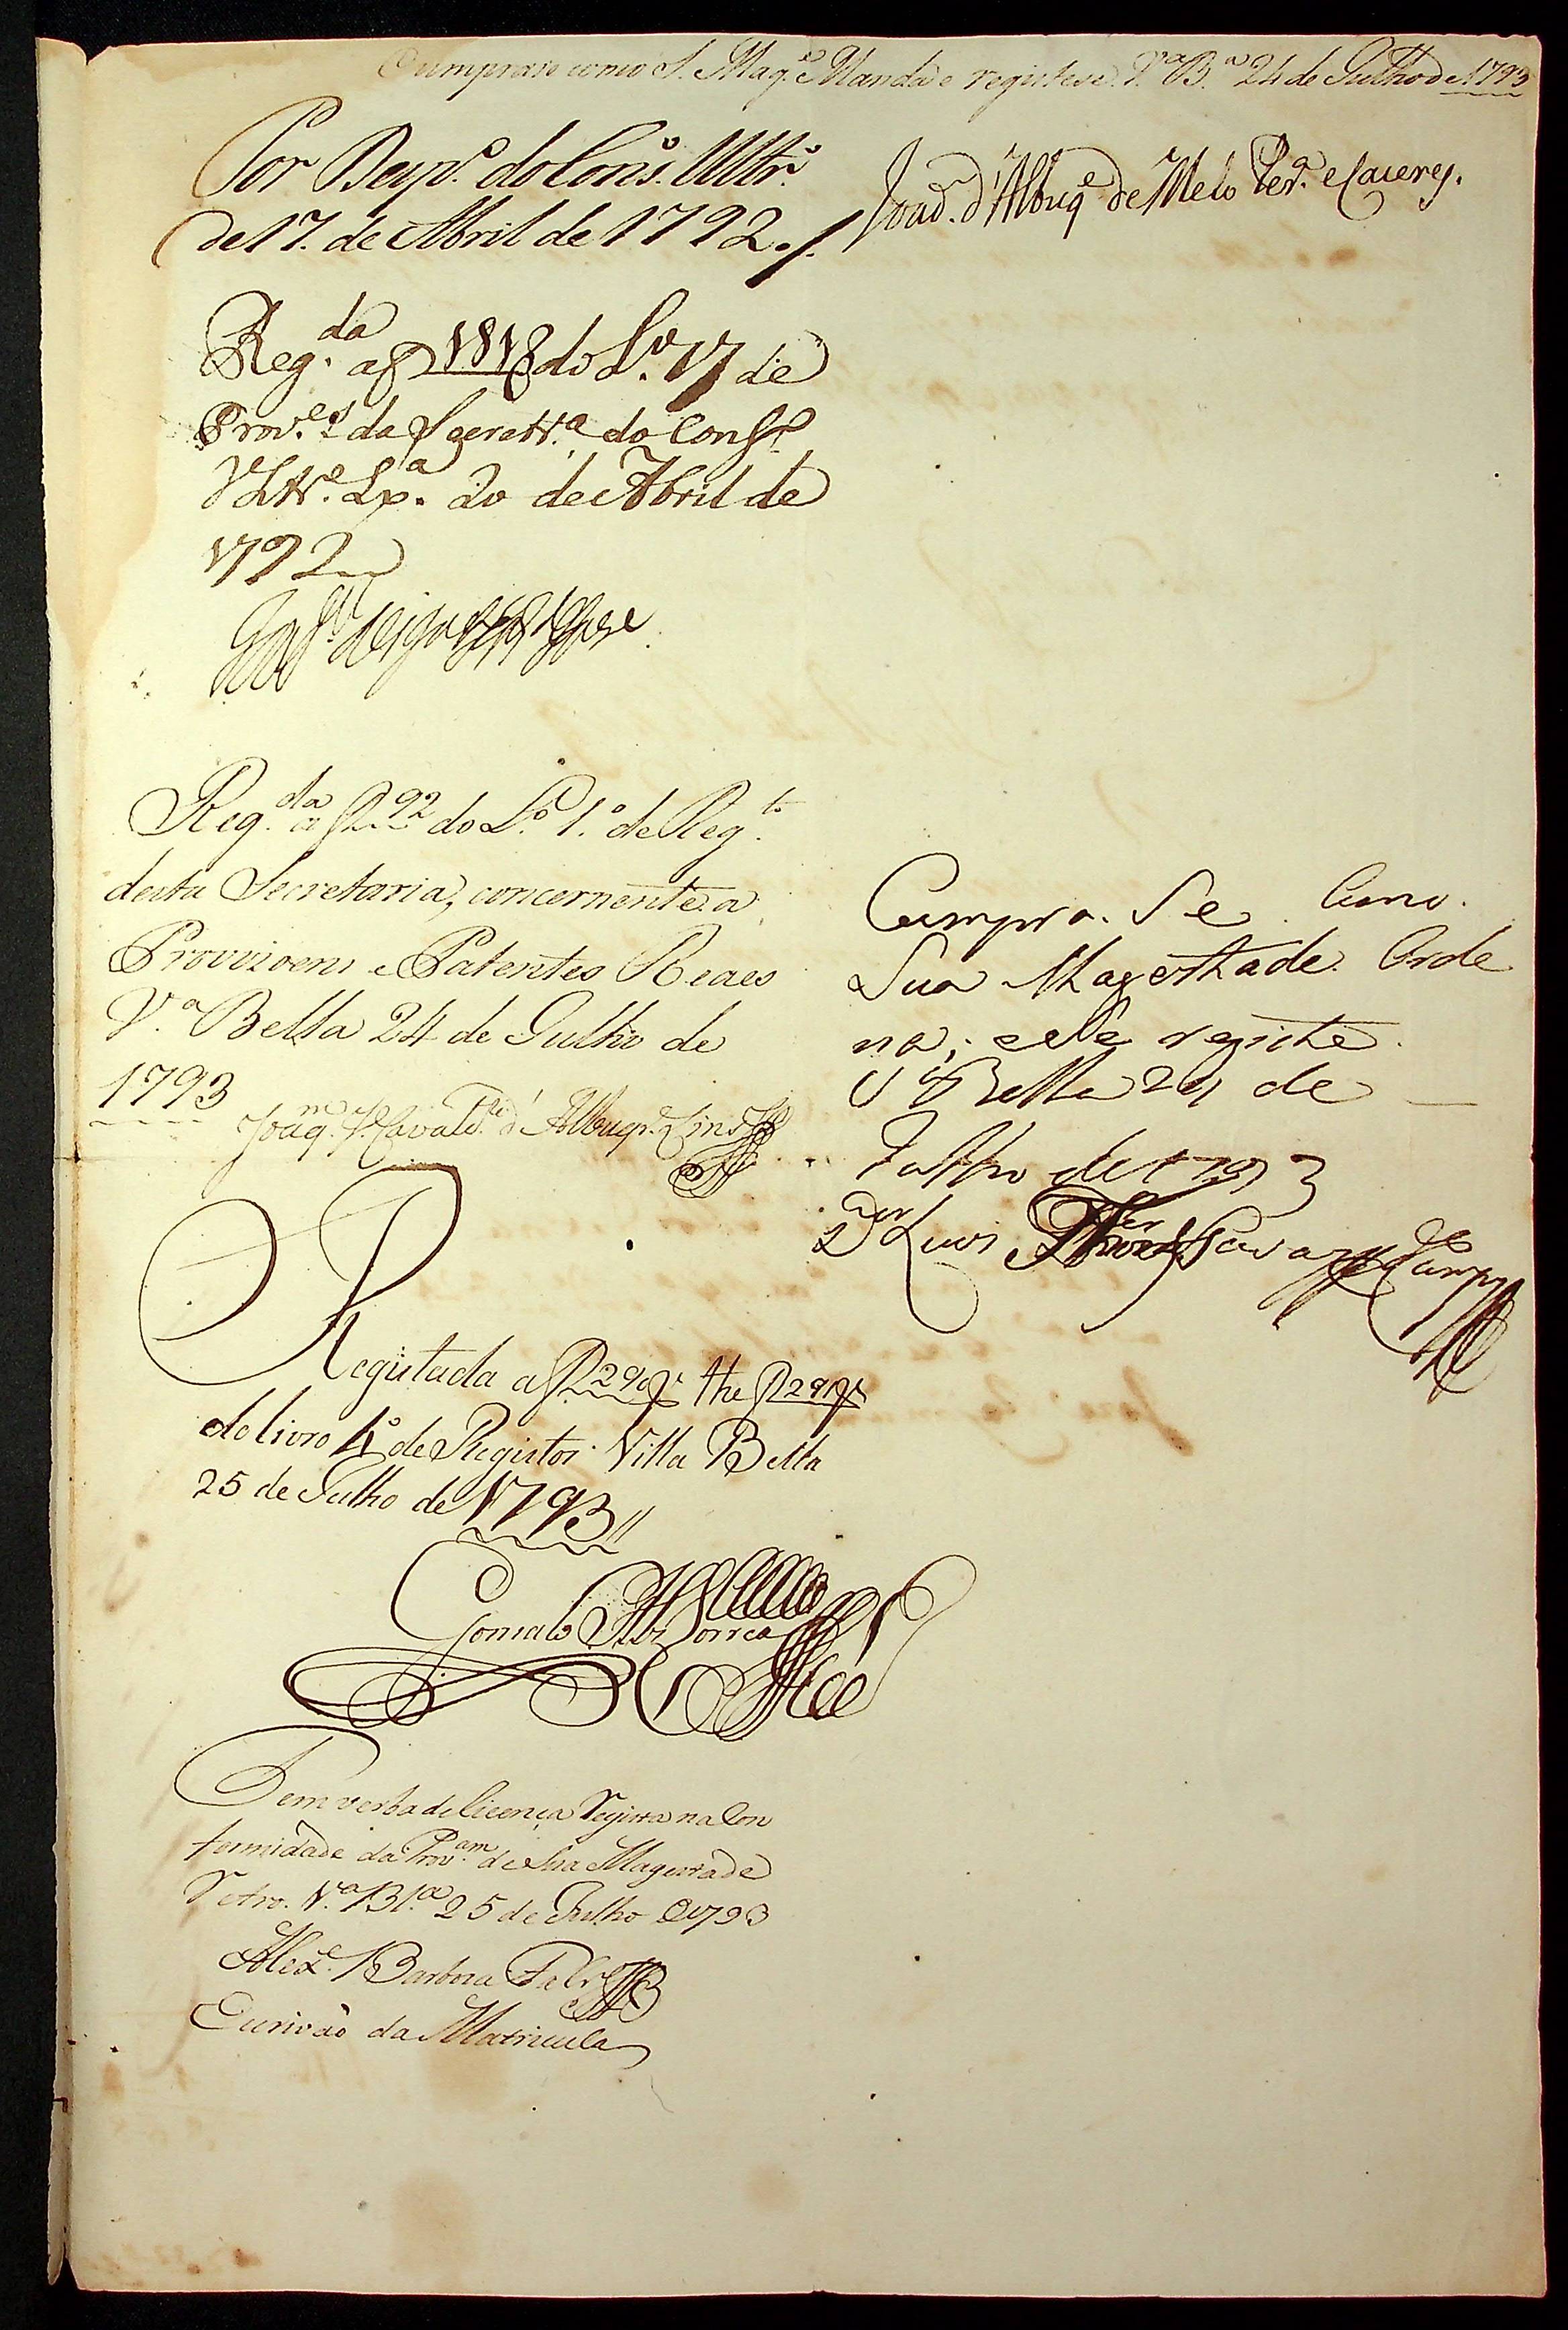 Cumprase como S. Mag.e Manda e registese. V.a B.a 24 de Julho de 1793
João d'Albuq.e de Melo Per.a e Caceres.
Por Desp.o do Cons.o Ultr.o
de 17. de Abril de 1792./.
Reg.da a f do L.o 17 de
Prov.es da Secretr.a do Cons.o
Ultr.o Lx.a 20 de Abril de
1792
Reg.da a f 92 do L.o 1.o de Reg.to
desta Secretaria, concernente a
Provizoens e Patentes Reaes
V.a Bella 24 de Julho de
1793
Joaq.m J.e Cavalc.te d'Albuqr.e Lins
Cumpra. Se Como.
Sua Magestade. Orde
na; e Se registe.
V.a Bella 24 de
Julho de 1793
D.or Luis
Registada a f 290v. the f 291v
do livro 4.o de Registos. Villa Bella
25 de Julho de 1793//
Gonsalo Correa
Tem verba de licença Registada na Con
formidade da Prov.am de Sua Magestade
Retro. V.a B.a 25 de Julho de 1793
Alex.e Barbosa
Escrivão da Matricula